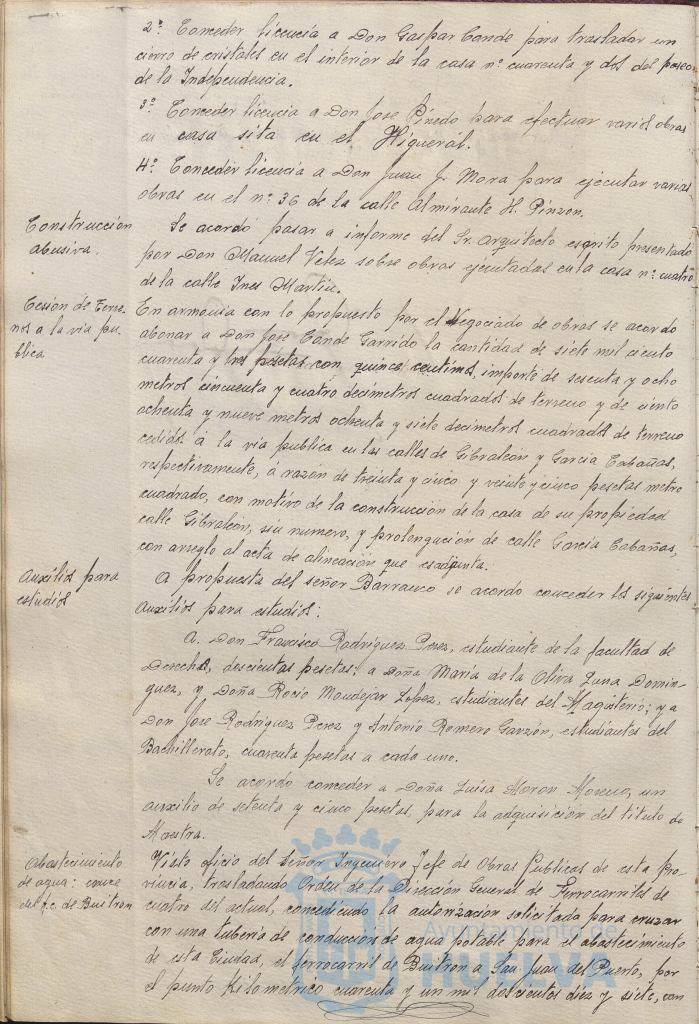 2º. Conceder licencia a Don Gaspar Conde para trasladar un
cierro de cristales en el interior de la casa nº cuarenta y dos del paseo
de la Independencia.
3º Conceder licencia a Don Jose Pinedo para efectuar varios obras
en casa sita en el Higueral.
4º. Conceder licencia a Don Juan J. Mora para ejecutar varias
obras en el nº 36 de la calle Almirante H. Pinzon.
Construcción
abusiva.
Se acordó pasar a informe del Sr. Arquitecto escrito presentado
por Don Manuel Velez sobre obras ejecutadas en la casa nº cuatro
de la calle Ines Martin.
Cesion de Terre-
nos a la via pu-
blica
En armonia con lo propuesto por el Negociado de obras se acordo
abonar a Don Jose Conde Garrido la cantidad de siete mil ciento
cuarenta y tres pesetas con quince centimos, importe de sesenta y ocho
metros cincuenta y cuatro decimetros cuadrados de terreno y de ciento
ochenta y nueve metros ochenta y siete decimetros cuadrados de terreno
cedidos á la via publica en las calles de Gibraleon y Garcia Cabañas,
respectivamente, á razón de treinta y cinco y veinte y cinco pesetas metro
cuadrado, con motivo de la construcción de la casa de su propiedad
calle Gibraleon, sin numero, y prolongación de calle Garcia Cabañas,
con arreglo al acta de alineación que se adjunta.
Auxilios para
estudios
A propuesta del señor Barranco se acordo conceder los siguientes
auxilios para estudios:
A. Don Francisco Rodriguez Perez, estudiante de la facultad de
Derecho, doscientas pesetas; a Doña María de la Oliva Luna Domin-
guez, y Doña Rocio Mondejar Lopez, estudiantes del Magisterio; y a
Don Jose Rodriguez Perez y Antonio Romero Garzón, estudiantes del
Bachillerato, cuarenta pesetas a cada uno.
Se acordo conceder a Doña Luisa Moron Moreno, un
auxilio de setenta y cinco pesetas para la adquisición del titulo de
Maestra.
Abastecimiento
de agua: cruce
del f.c. de Buitron
Visto oficio del Señor Ingeniero Jefe de Obras Publicas de esta Pro-
vincia, trasladando Orden de la Dirección General de Ferrocarriles de
cuatro del actual, concediendo la autorización solicitada para cruzar
con una tuberia de conducción de agua potable para el abastecimiento
de esta Ciudad, el ferrocarril de Buitron a San Juan del Puerto, por
el punto Kilometrico cuarenta y un mil doscientos diez y siete, con
Ayuntamiento de
HUELVA